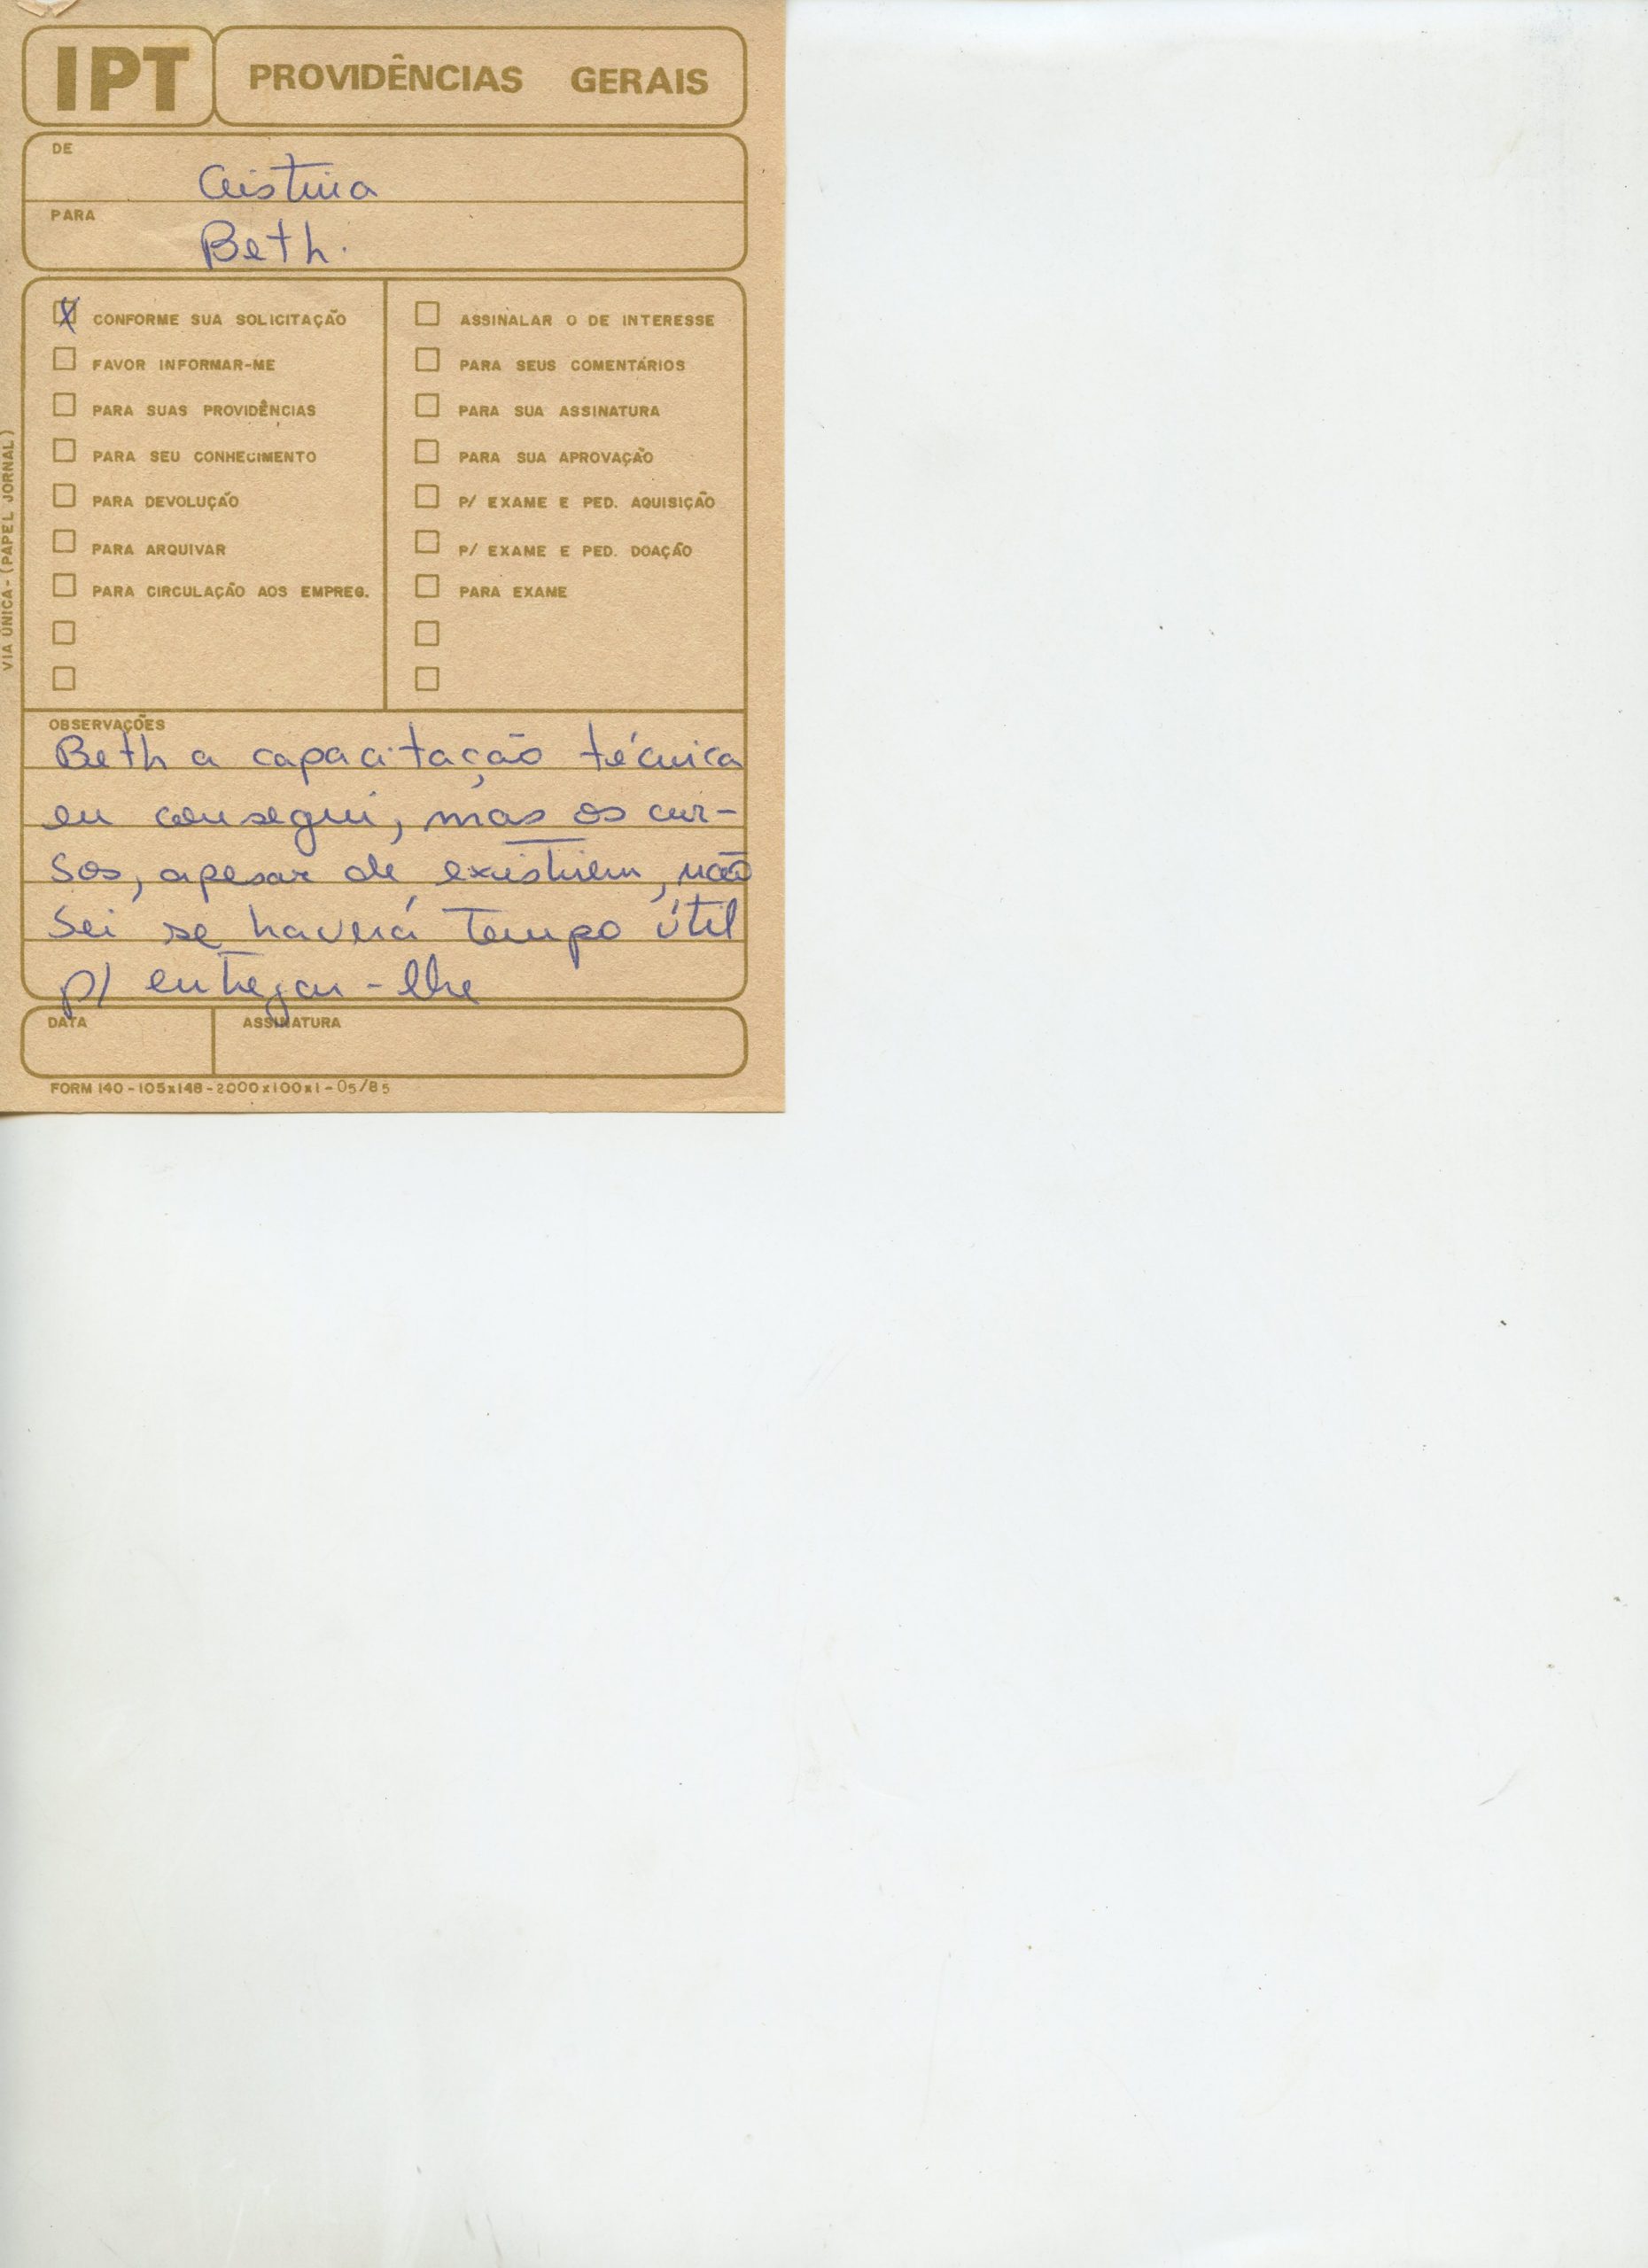 IPT PROVIDÊNCIAS GERAIS
DE
Cristina
PARA
Beth.
X CONFORME SUA SOLICITAÇÃO
FAVOR INFORMAR-ME
PARA SUAS PROVIDÊNCIAS
PARA SEU CONHECIMENTO
PARA DEVOLUÇÃO
PARA ARQUIVAR
PARA CIRCULAÇÃO AOS EMPREG.
ASSINALAR O DE INTERESSE
PARA SEUS COMENTÁRIOS
PARA SUA ASSINATURA
PARA SUA APROVAÇÃO
P/ EXAME E PED. AQUISIÇÃO
P/ EXAME E PED. DOAÇÃO
PARA EXAME
VIA ÚNICA - (PAPEL JORNAL)
OBSERVAÇÕES
Beth a capacitação técnica
eu consegui, mas os cur-
sos, apesar de existirem, não
sei se haverá tempo útil
p/ entregar-lhe
DATA
ASSINATURA
FORM 140-105x148-2000x100x1-05/85